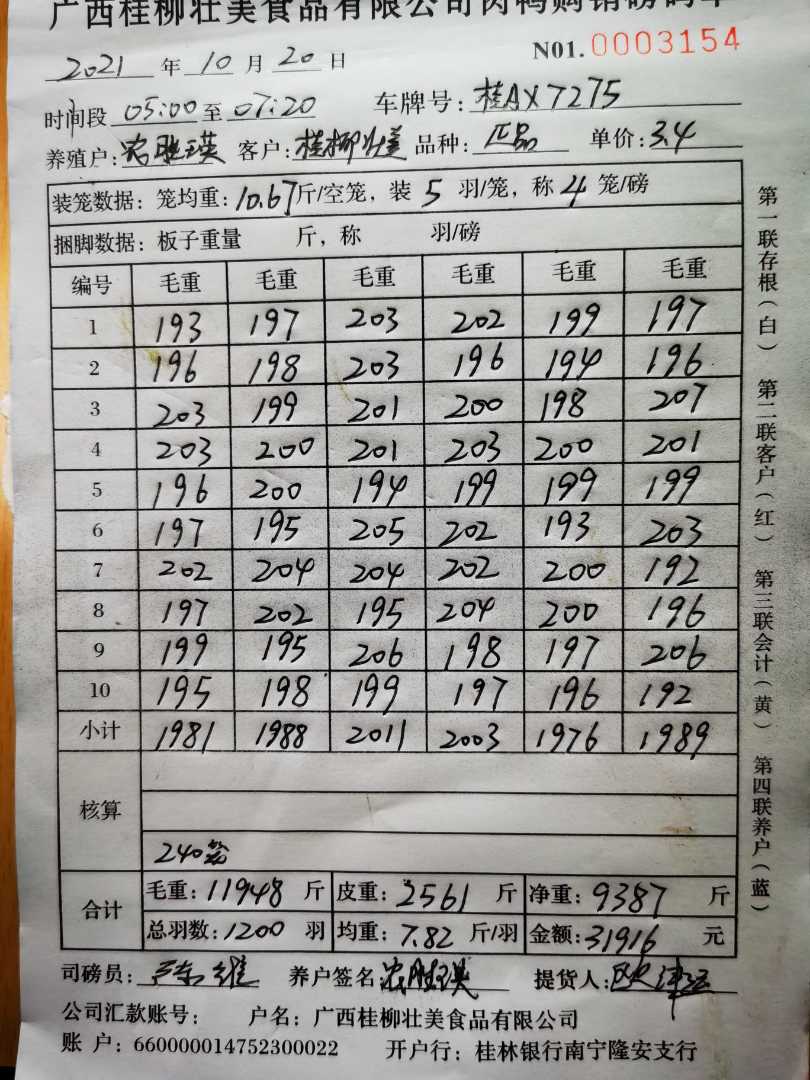 广西桂柳壮美食品有限公司肉鸭购销磅码单
2021 年 10 月 20 日 N01. 0003154
时间段 05:00 至 07:20 车牌号: 桂AX7275
养殖户: 农胜瑛 客户: 桂柳壮美 品种: 正品 单价: 3.4
装笼数据: 笼均重: 10.67 斤/空笼, 装 5 羽/笼, 称 4 笼/磅
捆脚数据: 板子重量 斤, 称 羽/磅
编号 毛重 毛重 毛重 毛重 毛重 毛重
1 193 197 203 202 199 197
2 196 198 203 196 194 196
3 203 199 201 200 198 207
4 203 200 201 203 200 201
5 196 200 194 199 199 199
6 197 195 205 202 193 203
7 202 204 204 202 200 192
8 197 202 195 204 200 196
9 199 195 206 198 197 206
10 195 198 199 197 196 192
小计 1981 1988 2011 2003 1976 1989
核算
240笼
合计
毛重: 11948 斤 皮重: 2561 斤 净重: 9387 斤
总羽数: 1200 羽 均重: 7.82 斤/羽 金额: 31916 元
司磅员: 养户签名: 农胜瑛 提货人:
公司汇款账号: 户名: 广西桂柳壮美食品有限公司
账 户: 660000014752300022 开户行: 桂林银行南宁隆安支行
第一联存根(白) 第二联客户(红) 第三联会计(黄) 第四联养户(蓝)